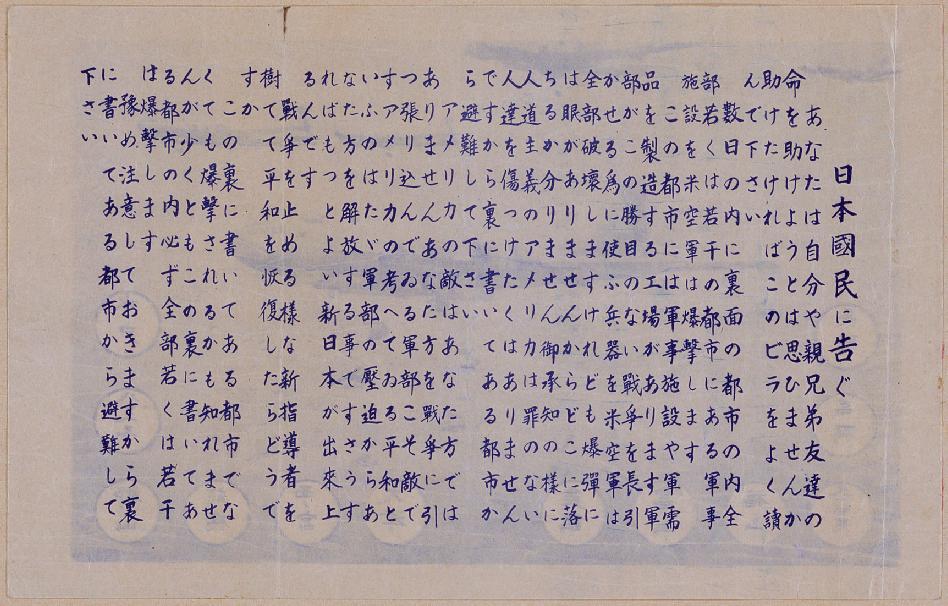 日本國民に告ぐ
あなたは自分や親兄弟友達の
命を助けようとは思ひませんか
助けたければこのビラをよく讀
んで下さい
数日の内に裏面の都市の内全
部若くは若干の都市にある軍事
施設を米空軍は爆撃します
この都市には軍事施設や軍需
品を製造する工場があります軍
部がこの勝目のない戰爭を長引
かせる爲に使ふ兵器を米空軍は
全部破壞しますけれども爆彈に
は眼がありませんからどこに落
ちるか分りません御承知の様に
人道主義のアメリカは罪のない
人達を傷つけたくはありません
ですから裏に書いてある都市か
ら避難して下さい
アメリカの敵はあなた方では
ありませんあなた方を戰爭に引
つ張り込んでゐる軍部こそ敵で
すアメリカの考へてゐる平和と
いふのはたゞ軍部の壓迫からあ
なた方を解放する事ですさうす
ればもつとよい新日本が出來上
るんです
戰爭を止める様な新指導者を
樹て平和を恢復したらどうで
すか
この裏に書いてある都市でな
くても爆撃されるかも知れませ
んが少くともこの裏に書いてあ
る都市の内必ず全部若くは若干
は爆撃します
豫め注意しておきますから裏
に書いてある都市から避難して
下さい